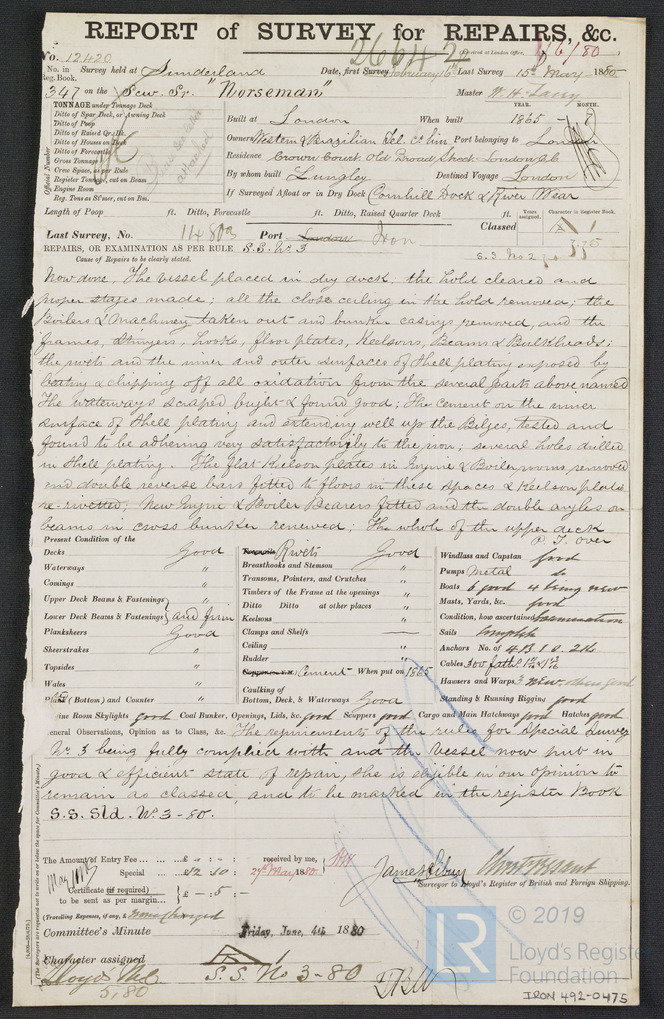 REPORT of SURVEY for REPAIRS, &c.
No. 12420
26642
Received at London Office, 1/6/80
No. in Reg. Book. Survey held at Sunderland Date, first Survey February 16th Last Survey 15th May 1880
347 on the Scw. Sr. "Norseman" Master W. H. Lacy
TONNAGE under Tonnage Deck
Ditto of Spar Deck, or Awning Deck
Ditto of Poop
Ditto of Raised Qr. Dk.
Ditto of Houses on Deck
Ditto of Forecastle
Gross Tonnage
Crew Space, as per Rule
Register Tonnage, cut on Beams
Engine Room
Reg. Tons as St'mer, cut on Bm.
Official Number
attached
YEAR. MONTH.
Built at London When built 1865 - 8
Owners Western & Brazilian Tel. Co. Lim Port belonging to London
Residence Crown Court, Old Broad Street London E.C.
By whom built Lungley Destined Voyage London
If Surveyed Afloat or in Dry Dock Cornhill Dock & River Wear
Length of Poop ft. Ditto, Forecastle ft. Ditto, Raised Quarter Deck ft. Years assigned. Character in Register Book.
Classed A 1
Last Survey, No. 11480a Port London Iron
S.S. No 2
REPAIRS, OR EXAMINATION AS PER RULE S.S. No. 3
Cause of Repairs to be clearly stated.
Now done, The vessel placed in dry dock, the hold cleared and
proper stages made; all the close ceiling in the hold removed; the
Boilers & Machinery taken out and bunker casings removed, and the
frames, Stringers, hooks, floor plates, Keelsons, Beams & Bulkheads;
the rivets and the inner and outer surfaces of Shell plating exposed by
beating & chipping off all oxidation from the several parts above named
The waterways scraped bright & found good; The cement on the inner
surface of Shell plating and extending well up the Bilges, tested and
found to be adhering very satisfactorily to the iron; several holes drilled
in Shell plating. The flat Keelson plates in Engine & Boiler rooms removed
and double reverse bars fitted to floors in these spaces & Keelson plates
re-rivetted; New Engine & Boiler Bearers fitted and the double angles on
beams in cross bunker renewed; The whole of the upper deck
P. T. over
Present Condition of the
Decks Good
Waterways "
Comings "
Upper Deck Beams & Fastenings
Lower Deck Beams & Fastenings and firm
Planksheers Good
Sheerstrakes "
Topsides "
Wales "
Plank (Bottom) and Counter "
Treenails Rivets Good
Breasthooks and Stemson "
Transoms, Pointers, and Crutches "
Timbers of the Frame at the openings "
Ditto Ditto at other places "
Keelsons "
Clamps and Shelfs —
Ceiling "
Rudder "
Cement When put on 1865
Caulking of
Bottom, Deck, & Waterways Good
Windlass and Capstan good
Pumps Metal do
Boats 6 good 4 being new
Masts, Yards, &c. good
Condition, how ascertained examination
Sails Complete
Anchors No. of 4 B 1 S. 2 K
Cables 300 faths
Hawsers and Warps 3 new others good
Standing & Running Rigging good
Engine Room Skylights good Coal Bunker, Openings, Lids, &c. good Scuppers good Cargo and Main Hatchways good Hatches good
General Observations, Opinion as to Class, &c. The requirements of the rules for Special Survey
No. 3 being fully complied with and the vessel now put in
good & efficient state of repair, she is eligible in our opinion to
remain as classed, and to be marked in the register Book
S.S. Sld. No. 3 - 80.
The Amount of Entry Fee £ " : - :
Special £12 10 :
received by me,
27 May 1880
Certificate (if required) £ - 5 -
to be sent as per margin
(Travelling Expenses, if any, £ none charged
Surveyor to Lloyd's Register of British and Foreign Shipping.
Committee's Minute Friday, June, 4th 1880
Character assigned A 1
S.S. No 3-80
Lloyds
5,80
(The Surveyors are requested not to write on or below the space for Committee's Minute.)
LR
© 2019
Lloyd's Register
Foundation
IRON 492-0475